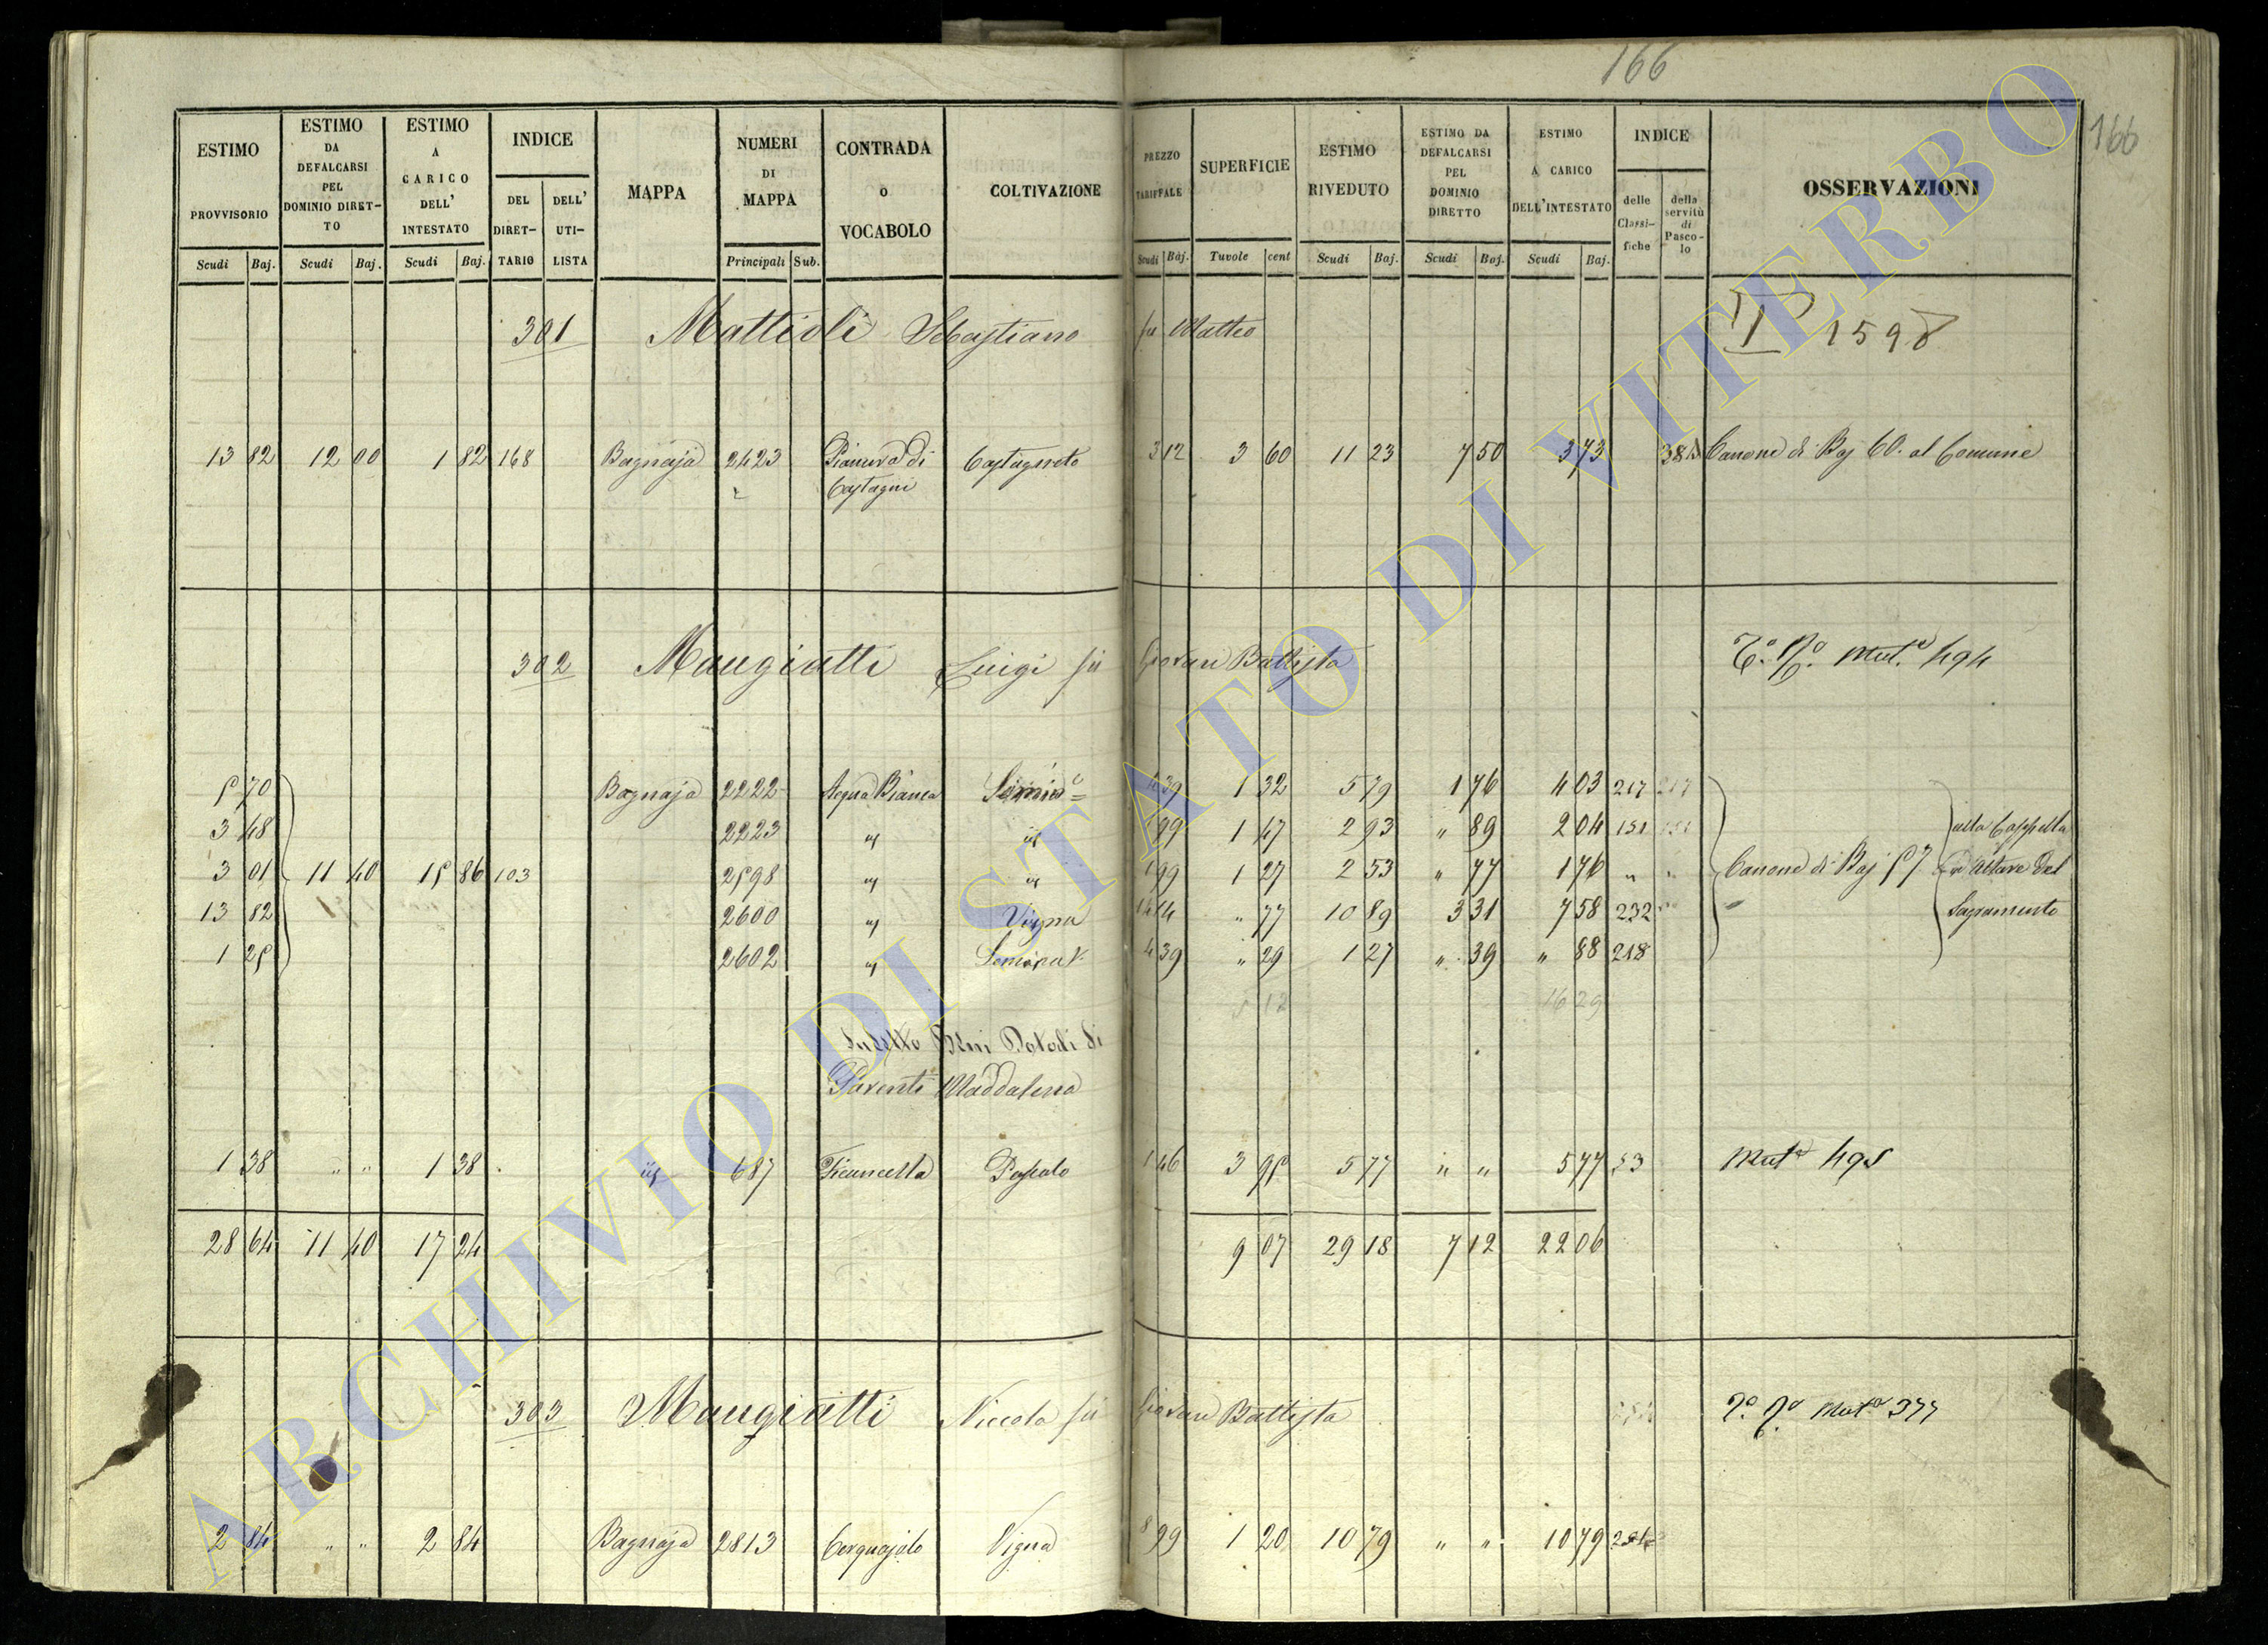 166
166
ESTIMO PROVVISORIO
ESTIMO DA DEFALCARSI PEL DOMINIO DIRET-TO
ESTIMO A CARICO DELL' INTESTATO
INDICE
DEL DIRET-TARIO
DELL' UTI-LISTA
MAPPA
NUMERI DI MAPPA
CONTRADA O VOCABOLO
COLTIVAZIONE
PREZZO TARIFFALE
SUPERFICIE
ESTIMO RIVEDUTO
ESTIMO DA DEFALCARSI PEL DOMINIO DIRETTO
ESTIMO A CARICO DELL'INTESTATO
INDICE
delle Classi-fiche
della servitù di Pasco-lo
OSSERVAZIONI
Scudi Baj. Scudi Baj. Scudi Baj. Principali Sub. Scudi Baj. Tavole cent Scudi Baj. Scudi Baj. Scudi Baj.
301 Mattioli Sebastiano fu Matteo 1598
13 82 12 00 1 82 168 Bagnaja 2423 Pianura di Castagneto 3 12 3 60 11 23 7 50 3 73 Canone di Baj 60. al Comune
Castagni
302 Mangiatti Luigi fu Giovan Battista Mut.a 494
5 70 Bagnaja 2222 Acqua Bianca 4 39 1 32 5 79 1 76 4 03 217 217
3 48 2223 " " 1 99 1 47 2 93 " 89 2 04 151 151 alla Cappella
3 01 11 40 15 86 103 2598 " " 1 99 1 27 2 53 " 77 1 76 " " Canone di Baj 57 Altare del
13 82 2600 " Vigna 14 14 " 77 10 89 3 31 7 58 232 Sagramento
1 25 2602 " 4 39 " 29 1 27 " 39 " 88 218
5 12 16 29
Sudetto Beni Dotali di
Parenti Maddalena
1 38 " " 1 38 " 687 Ficuncella Pascolo 1 46 3 95 5 77 " " 5 77 53 Mut.a 495
28 64 11 40 17 24 9 07 29 18 7 12 22 06
303 Mangiatti Niccola fu Giovan Battista Mut.a 377
2 84 " " 2 84 Bagnaja 2813 Cerquajolo Vigna 8 99 1 20 10 79 " " 10 79
ARCHIVIO DI STATO DI VITERBO